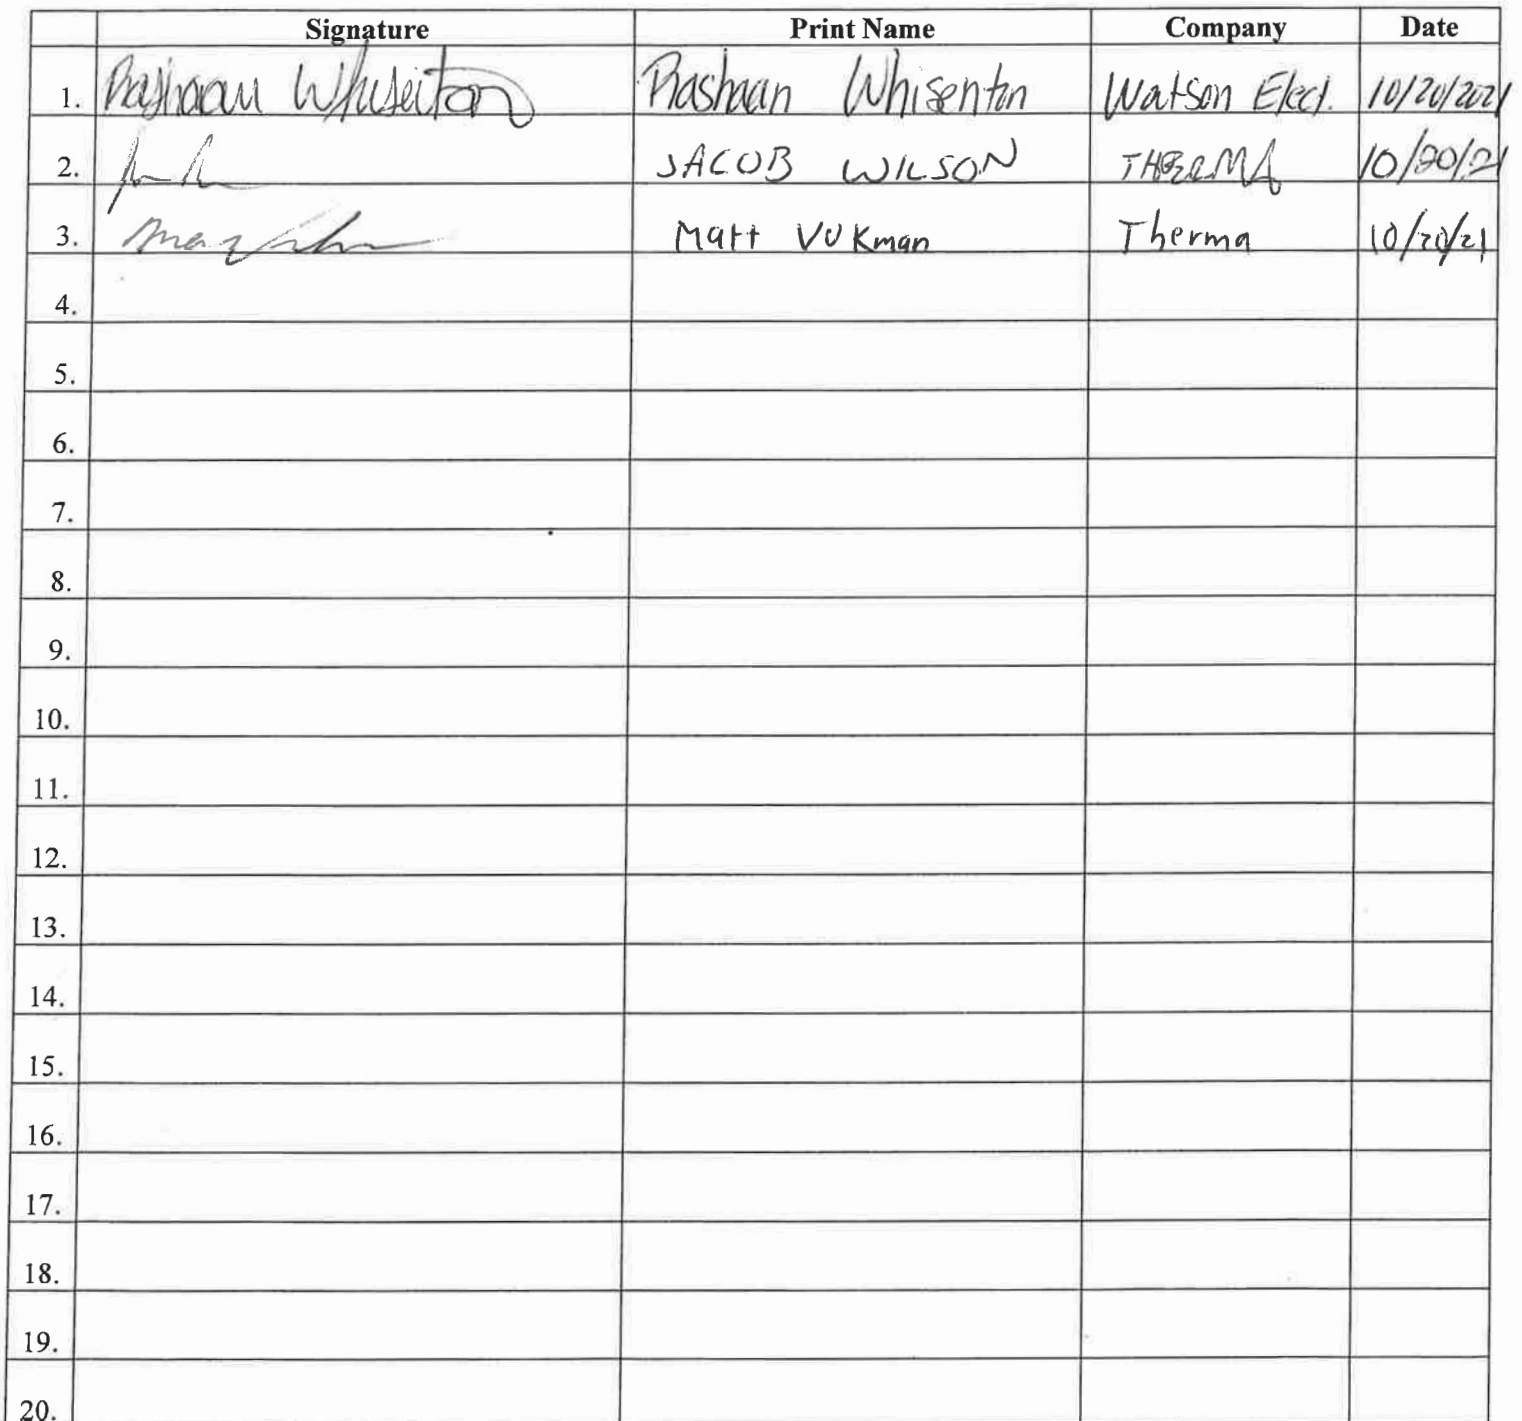 Signature Print Name Company Date
1. Rashaan Whisenton Rashaan Whisenton Watson Elect. 10/20/2021
2. JACOB WILSON THERMA 10/20/21
3. Matt Vukman Therma 10/20/21
4.
5.
6.
7.
8.
9.
10.
11.
12.
13.
14.
15.
16.
17.
18.
19.
20.